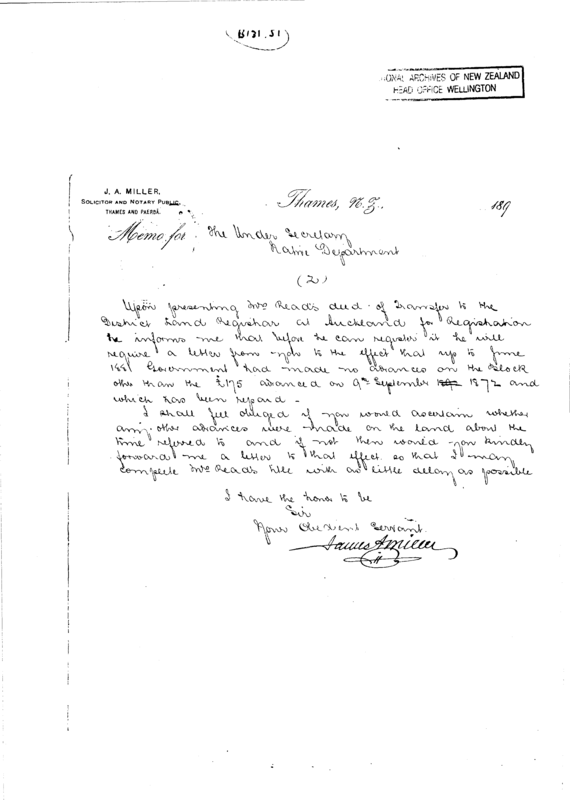 B131.51
ONAL ARCHIVES OF NEW ZEALAND
HEAD OFFICE WELLINGTON
J. A. MILLER,
SOLICITOR AND NOTARY PUBLIC,
THAMES AND PAEROA.
Thames, N.Z., 189
Memo. for The Under Secretary
Native Department
(2)
Upon presenting Mrs Read's deed of Transfer to the
District Land Registrar at Auckland for Registration
he informs me that before he can register it he will
require a letter from you to the effect that up to June
1881 Government had made no advances on the Block
other than the £175 advanced on 9th September 1872 and
which has been repaid -
I shall feel obliged if you would ascertain whether
any other advances were made on the land about the
time referred to and if not then would you kindly
forward me a letter to that effect so that I may
complete Mrs Read's title with as little delay as possible
I have the honor to be
Sir
Your Obedient Servant
James A Miller